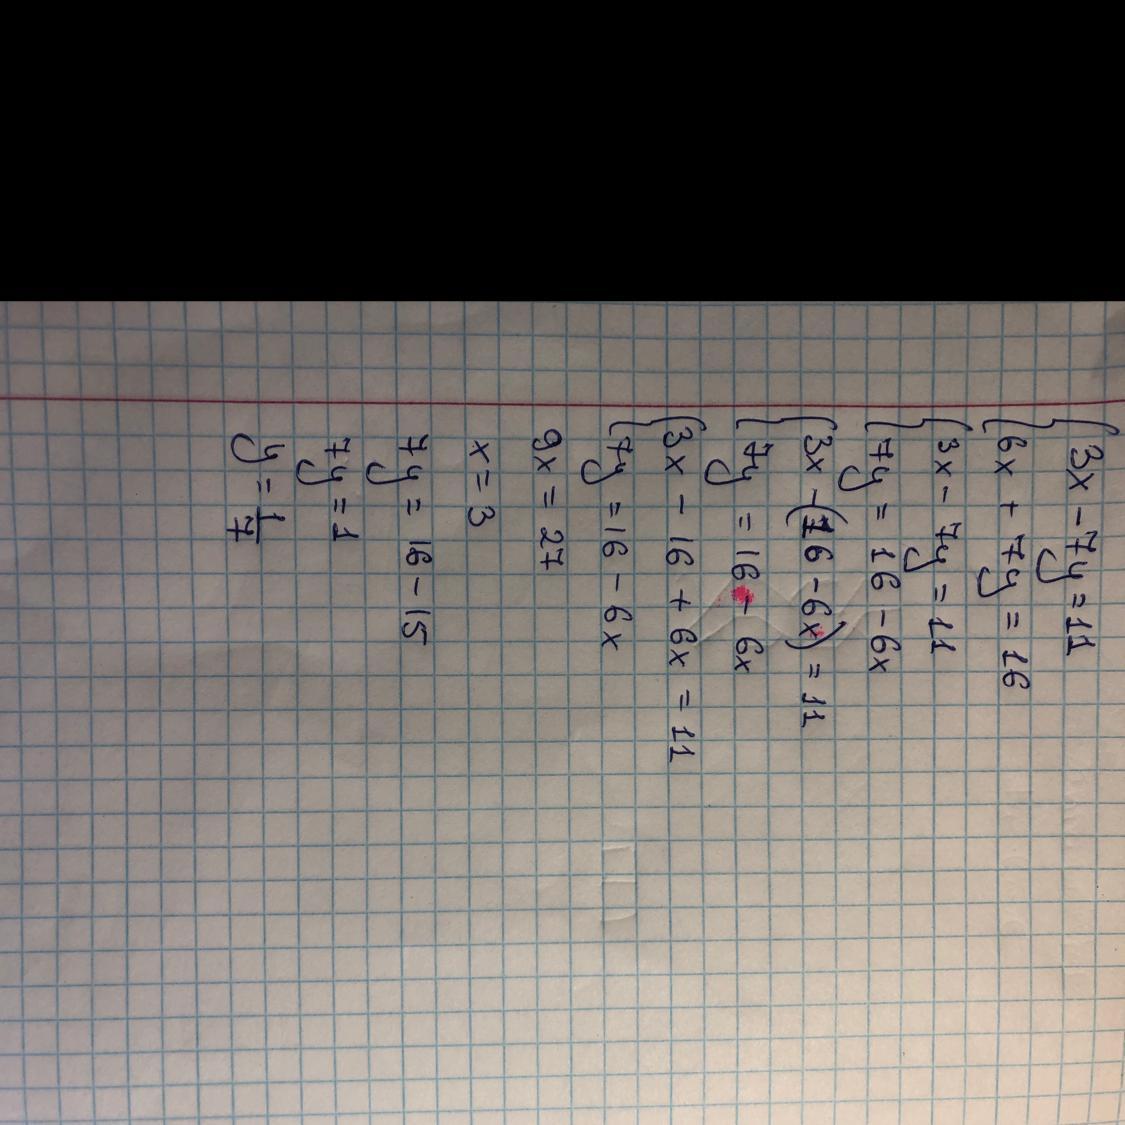 3x - 7y = 11
6x + 7y = 16
3x - 7y = 11
7y = 16 - 6x
3x - (16 - 6x) = 11
7y = 16 - 6x
3x - 16 + 6x = 11
7y = 16 - 6x
9x = 27
x = 3
7y = 16 - 15
7y = 1
y = 1/7